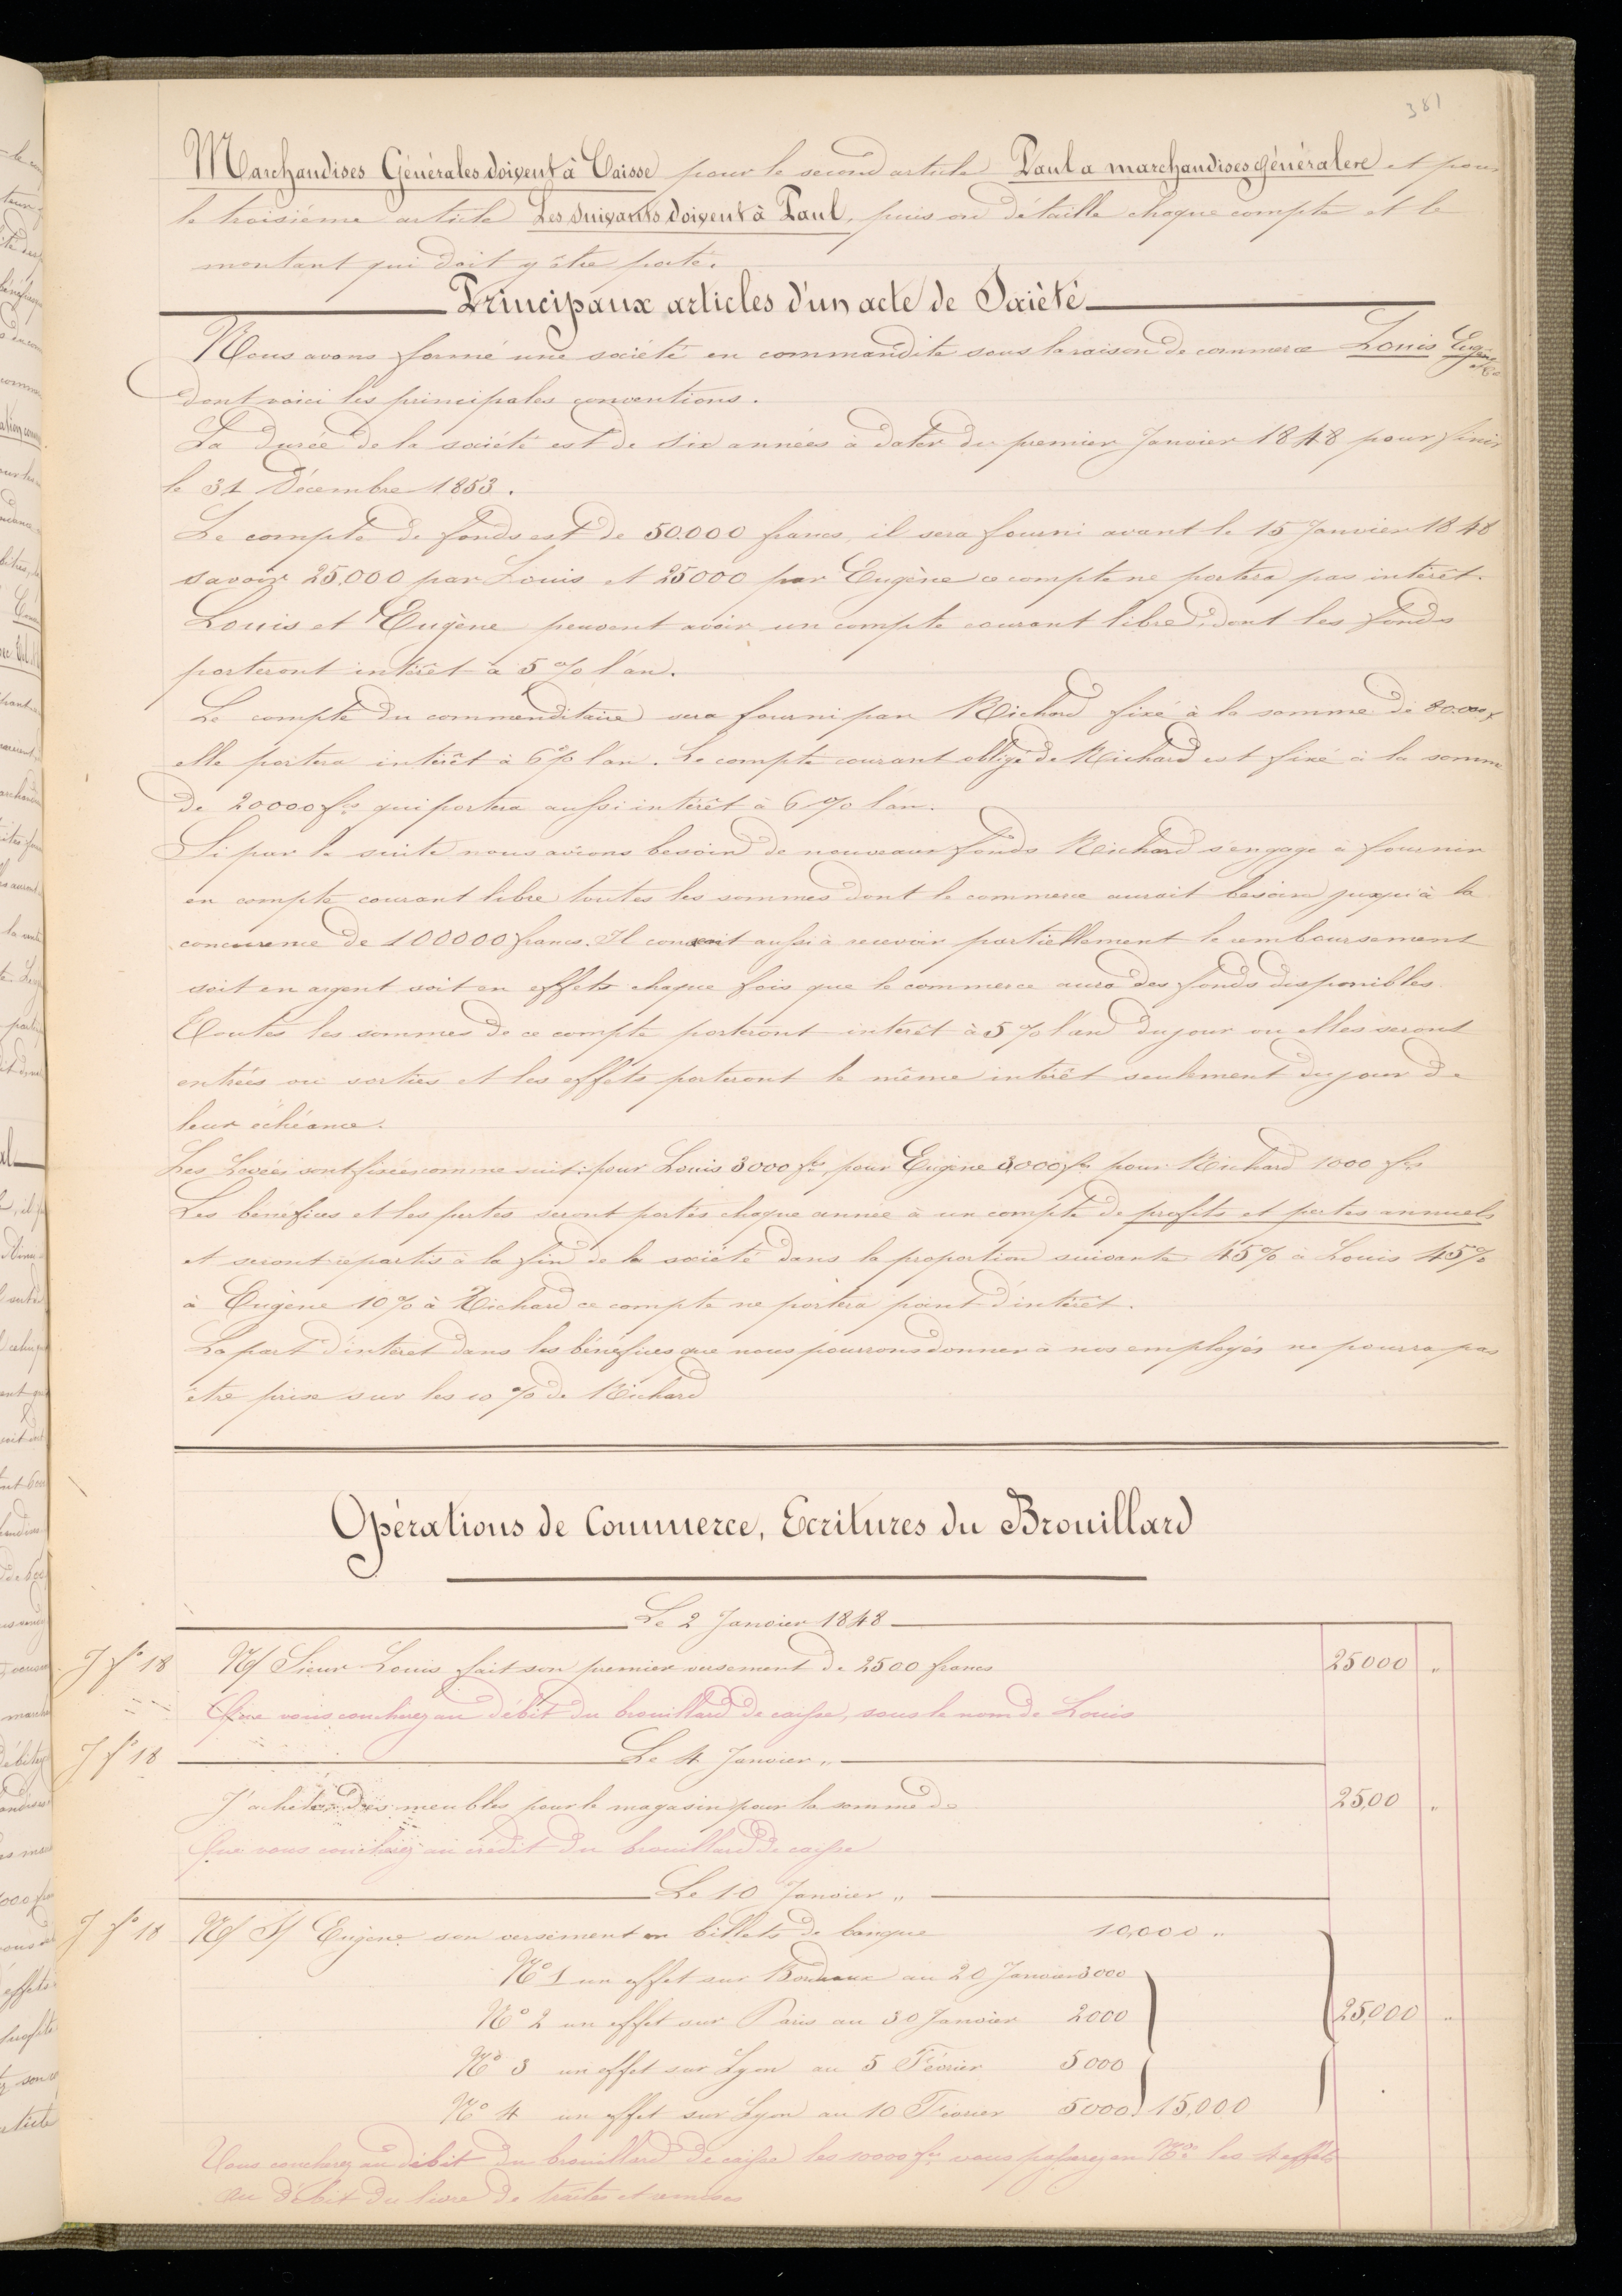 381
Marchandises Générales doivent à Caisse pour le second article Paul a marchandises générales et pour
le troisième article Les suivants doivent à Paul, puis on détaille chaque compte et le
montant qui doit y être porté.
Principaux articles d'un acte de Société
Nous avons formé une société en commandite sous la raison de commerce Louis Eugène & Cie
dont voici les principales conventions.
La durée de la société est de six années à dater du premier Janvier 1848 pour finir
le 31 Décembre 1853.
Le compte de fonds est de 50.000 francs, il sera fourni avant le 15 Janvier 1848
savoir 25.000 par Louis et 25000 par Eugène ce compte ne portera pas intérêt.
Louis et Eugène peuvent avoir un compte courant libre, dont les fonds
porteront intérêt à 5 % l'an.
Le compte du commenditaire sera fourni par Richard fixé à la somme de 80.000 f
elle portera intérêt à 6 % l'an. Le compte courant obligé de Richard est fixé à la somme
de 20000 fcs qui portera aussi intérêt à 6 % l'an.
Si par la suite nous avions besoin de nouveaux fonds Richard s'engage à fournir
en compte courant libre toutes les sommes dont le commerce aurait besoin jusqu'à la
concurence de 100000 francs. Il consent aussi à recevoir partiellement le remboursement
soit en argent soit en effets chaque fois que le commerce aura des fonds disponibles.
Toutes les sommes de ce compte porteront intérêt à 5 % l'an du jour ou elles seront
entrées ou sorties et les effets porteront le même intérêt seulement du jour de
leur échéance.
Les Levées sont fixées comme suit: pour Louis 3000 fcs, pour Eugène 3,000 fcs pour Richard 1000 fcs
Les bénéfices et les pertes seront portés chaque année à un compte de profits et pertes annuels
et seront répartis à la fin de la société dans la proportion suivante 45 % à Louis 45 %
à Eugène 10 % à Richard ce compte ne portera point d'intérêt.
La part d'intérêt dans les bénéfices que nous pourrons donner à nos employés ne pourra pas
être prise sur les 10 % de Richard
Opérations de Commerce, Ecritures du Brouillard
Le 2 Janvier 1848
J fo 18 N/ Sieur Louis fait son premier versement de 2500 francs 25000 "
Que vous coucherez au débit du brouillard de caisse, sous le nom de Louis
J fo 18 Le 4 Janvier "
J'achète des meubles pour le magasin pour la somme de 25,00 "
Que vous coucherez au crédit du brouillard de caisse
Le 10 Janvier "
J fo 18 N/ S/ Eugène son versement en billets de banque 10,000 "
No 1 un effet sur Bordeaux au 20 Janvier 3000
No 2 un effet sur Paris au 30 Janvier 2000 25,000 "
No 3 un effet sur Lyon au 5 Février 5000
No 4 un effet sur Lyon au 10 Février 5000 15,000
Vous coucherez au débit du brouillard de caisse les 10000 fcs vous passerez en No les 4 effets
au débit du livre de traites et remises